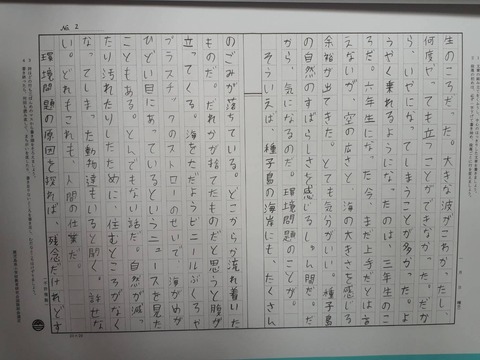 No. 2
生のころだった。大きな波がこわかったし、
何度やっても立つことができなかった。だか
ら、いやになってしまうことが多かった。よ
うやく乗れるようになったのは、三年生のこ
ろだ。六年生になった今、まだ上手だとは言
えないが、空の広さと、海の大きさを感じる
余裕が出てきた。とても気分がいい。種子島
の自然のすばらしさを感じるし
だ。だ
から、気になるのだ。環境問題のことが。
そういえば、種子島の海岸にも、たくさん
のごみが落ちている。どこからか流れ着いた
ものだ。だれかが捨てたものだと思うと腹が
立ってくる。海をただようビニールぶくろや
プラスチックのストローのせいで、海がめが
ひどい目にあっているというニュースを見た
こともある。とんでもない話だ。自然が減っ
たり汚れたりしたために、住むところがなく
なってしまった動物達もいると聞く。許せな
い。どれもこれも、人間の仕業だ。
環境問題の原因を探れば、残念だけれどす